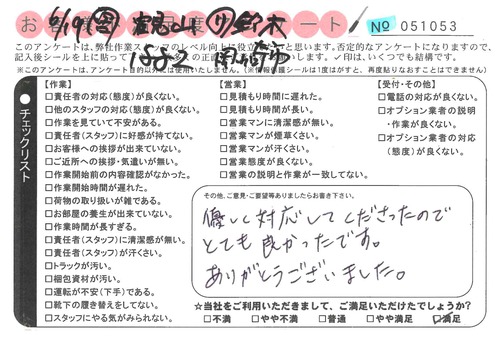 お客様満足度アンケート
№ 051053
このアンケートは、弊社作業スタッフのレベル向上に役立
と思います。否定的なアンケートになりますので、
記入後シールを上に貼って
多くの正直
います。✓印は、いくつでも結構です。
※このアンケートは、アンケート目的以外には使用いたしません。(※情報保護シールは1度がはすと、再度貼りなおすことはできません)
チェックリスト
【作業】
□責任者の対応(態度)が良くない。
□他のスタッフの対応(態度)が良くない。
□作業を見ていて不安がある。
□責任者(スタッフ)に好感が持てない。
□お客様への挨拶が出来ていない。
□ご近所への挨拶・気遣いが無い。
□作業開始前の内容確認がなかった。
□作業開始時間が遅れた。
□荷物の取り扱いが雑である。
□お部屋の養生が出来ていない。
□作業時間が長すぎる。
□責任者(スタッフ)に清潔感が無い。
□責任者(スタッフ)が汗くさい。
□トラックが汚い。
□梱包資材が汚い。
□運転が不安(下手)である。
□靴下の履き替えをしてない。
□スタッフにやる気がみられない。
【営業】
□見積もり時間に遅れた。
□見積もり時間が長い。
□営業マンに清潔感が無い。
□営業マンが煙草くさい。
□営業マンが汗くさい。
□営業態度が良くない。
□営業の説明と作業が一致してない。
【受付・その他】
□電話の対応が良くない。
□オプション業者の説明
・作業が良くない。
□オプション業者の対応
(態度)が良くない。
その他、ご意見・ご要望等ありましたらお書き下さい。
優しく対応してくださったので
とても良かったです。
ありがとうございました。
☆当社をご利用いただきまして、ご満足いただけたでしょうか?
□不満 □やや不満 □普通 □やや満足 ☑満足